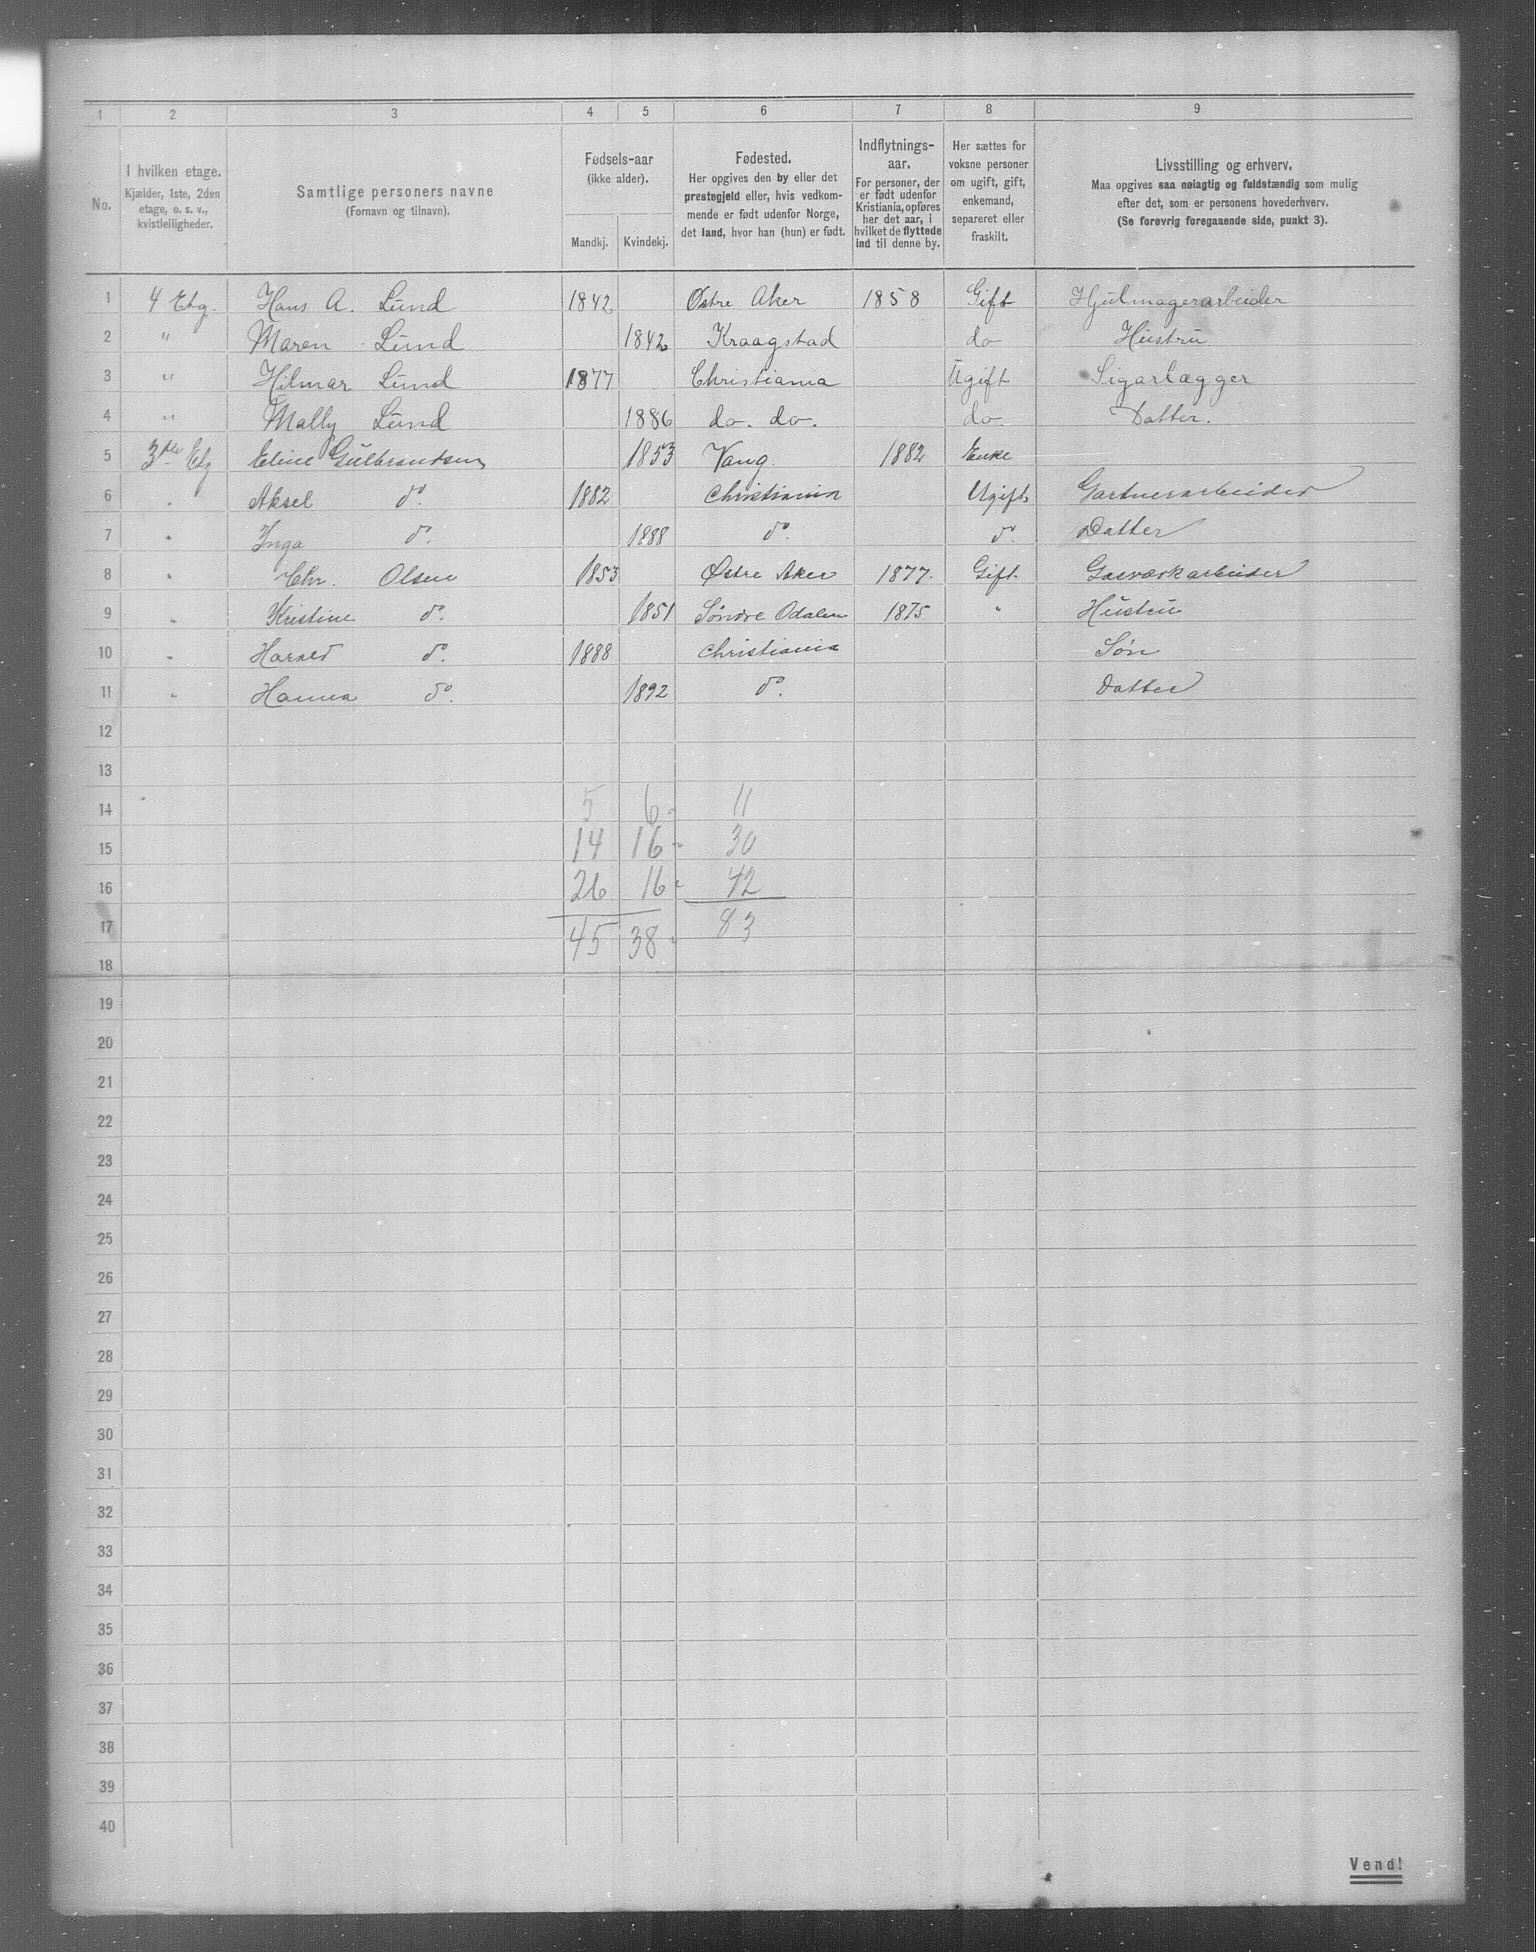 1 2 3 4 5 6 7 8 9
No.
I hvilken etage.
Kjælder, 1ste, 2den
etage, o. s. v.,
kvistleiligheder.
Samtlige personers navne
(Fornavn og tilnavn).
Fødsels-aar
(ikke alder).
Mandkj. Kvindekj.
Fødested.
Her opgives den by eller det
prestegjeld eller, hvis vedkom-
mende er født udenfor Norge,
det land, hvor han (hun) er født.
Indflytnings-
aar.
For personer, der
er født udenfor
Kristiania, opføres
her det aar, i
hvilket de flyttede
ind til denne by.
Her sættes for
voksne personer
om ugift, gift,
enkemand,
separeret eller
fraskilt.
Livsstilling og erhverv.
Maa opgives saa nøiagtig og fuldstændig som mulig
efter det, som er personens hovederhverv.
(Se forøvrig foregaaende side, punkt 3).
1 4 Etg. Hans A. Lund 1842 Østre Aker 1858 Gift Hjulmagerarbeider
2 " Maren Lund 1842 Kraagstad do Hustru
3 " Hilmar Lund 1877 Christiania Ugift Sigarlægger
4 " Mally Lund 1886 do. do. do. Datter.
5 3die Etg Eline Gulbrandsen 1853 Vang. 1882 Enke
6 " Aksel do. 1882 Christiania Ugift Gartnerarbeider
7 " Inga do. 1888 do. do. Datter
8 " Chr. Olsen 1853 Østre Aker 1877. Gift Gasværkarbeider
9 " Kristine do. 1851 Søndre Odalen 1875 " Hustru
10 " Harald do. 1888 Christiania Søn
11 " Hanna do. 1892 do. Datter
12
13
14 5 6 11
15 14 16 30
16 26 16 42
17 45 38 83
18
19
20
21
22
23
24
25
26
27
28
29
30
31
32
33
34
35
36
37
38
39
40
Vend!